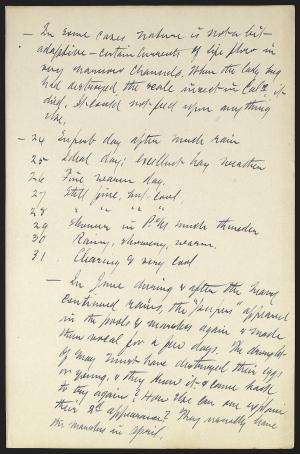 — In some cases nature is not a bit
adaptive — certain currents of life flow in
very narrow channels. When the lady bug
had destroyed the scale insect in Cal. it
died. It could not feed upon anything
else.
— 24 Superb day after much rain
25 Ideal day; excellent hay weather
26 Fine warm day.
27 Still fine, but cool
28 " " " "
29 Showers in P.M. much thunder
30 Rainy, showery, warm.
31 Clearing & very cool
— In June during & after the heavy
continued rains, the "peepers" appeared
in the pools & marshes again & made
them vocal for a few days. The drought
of May must have destroyed their eggs
or young, & they knew it & came back
to try again? How else can one explain
their 2d appearance? They usually leave
the marshes in April.